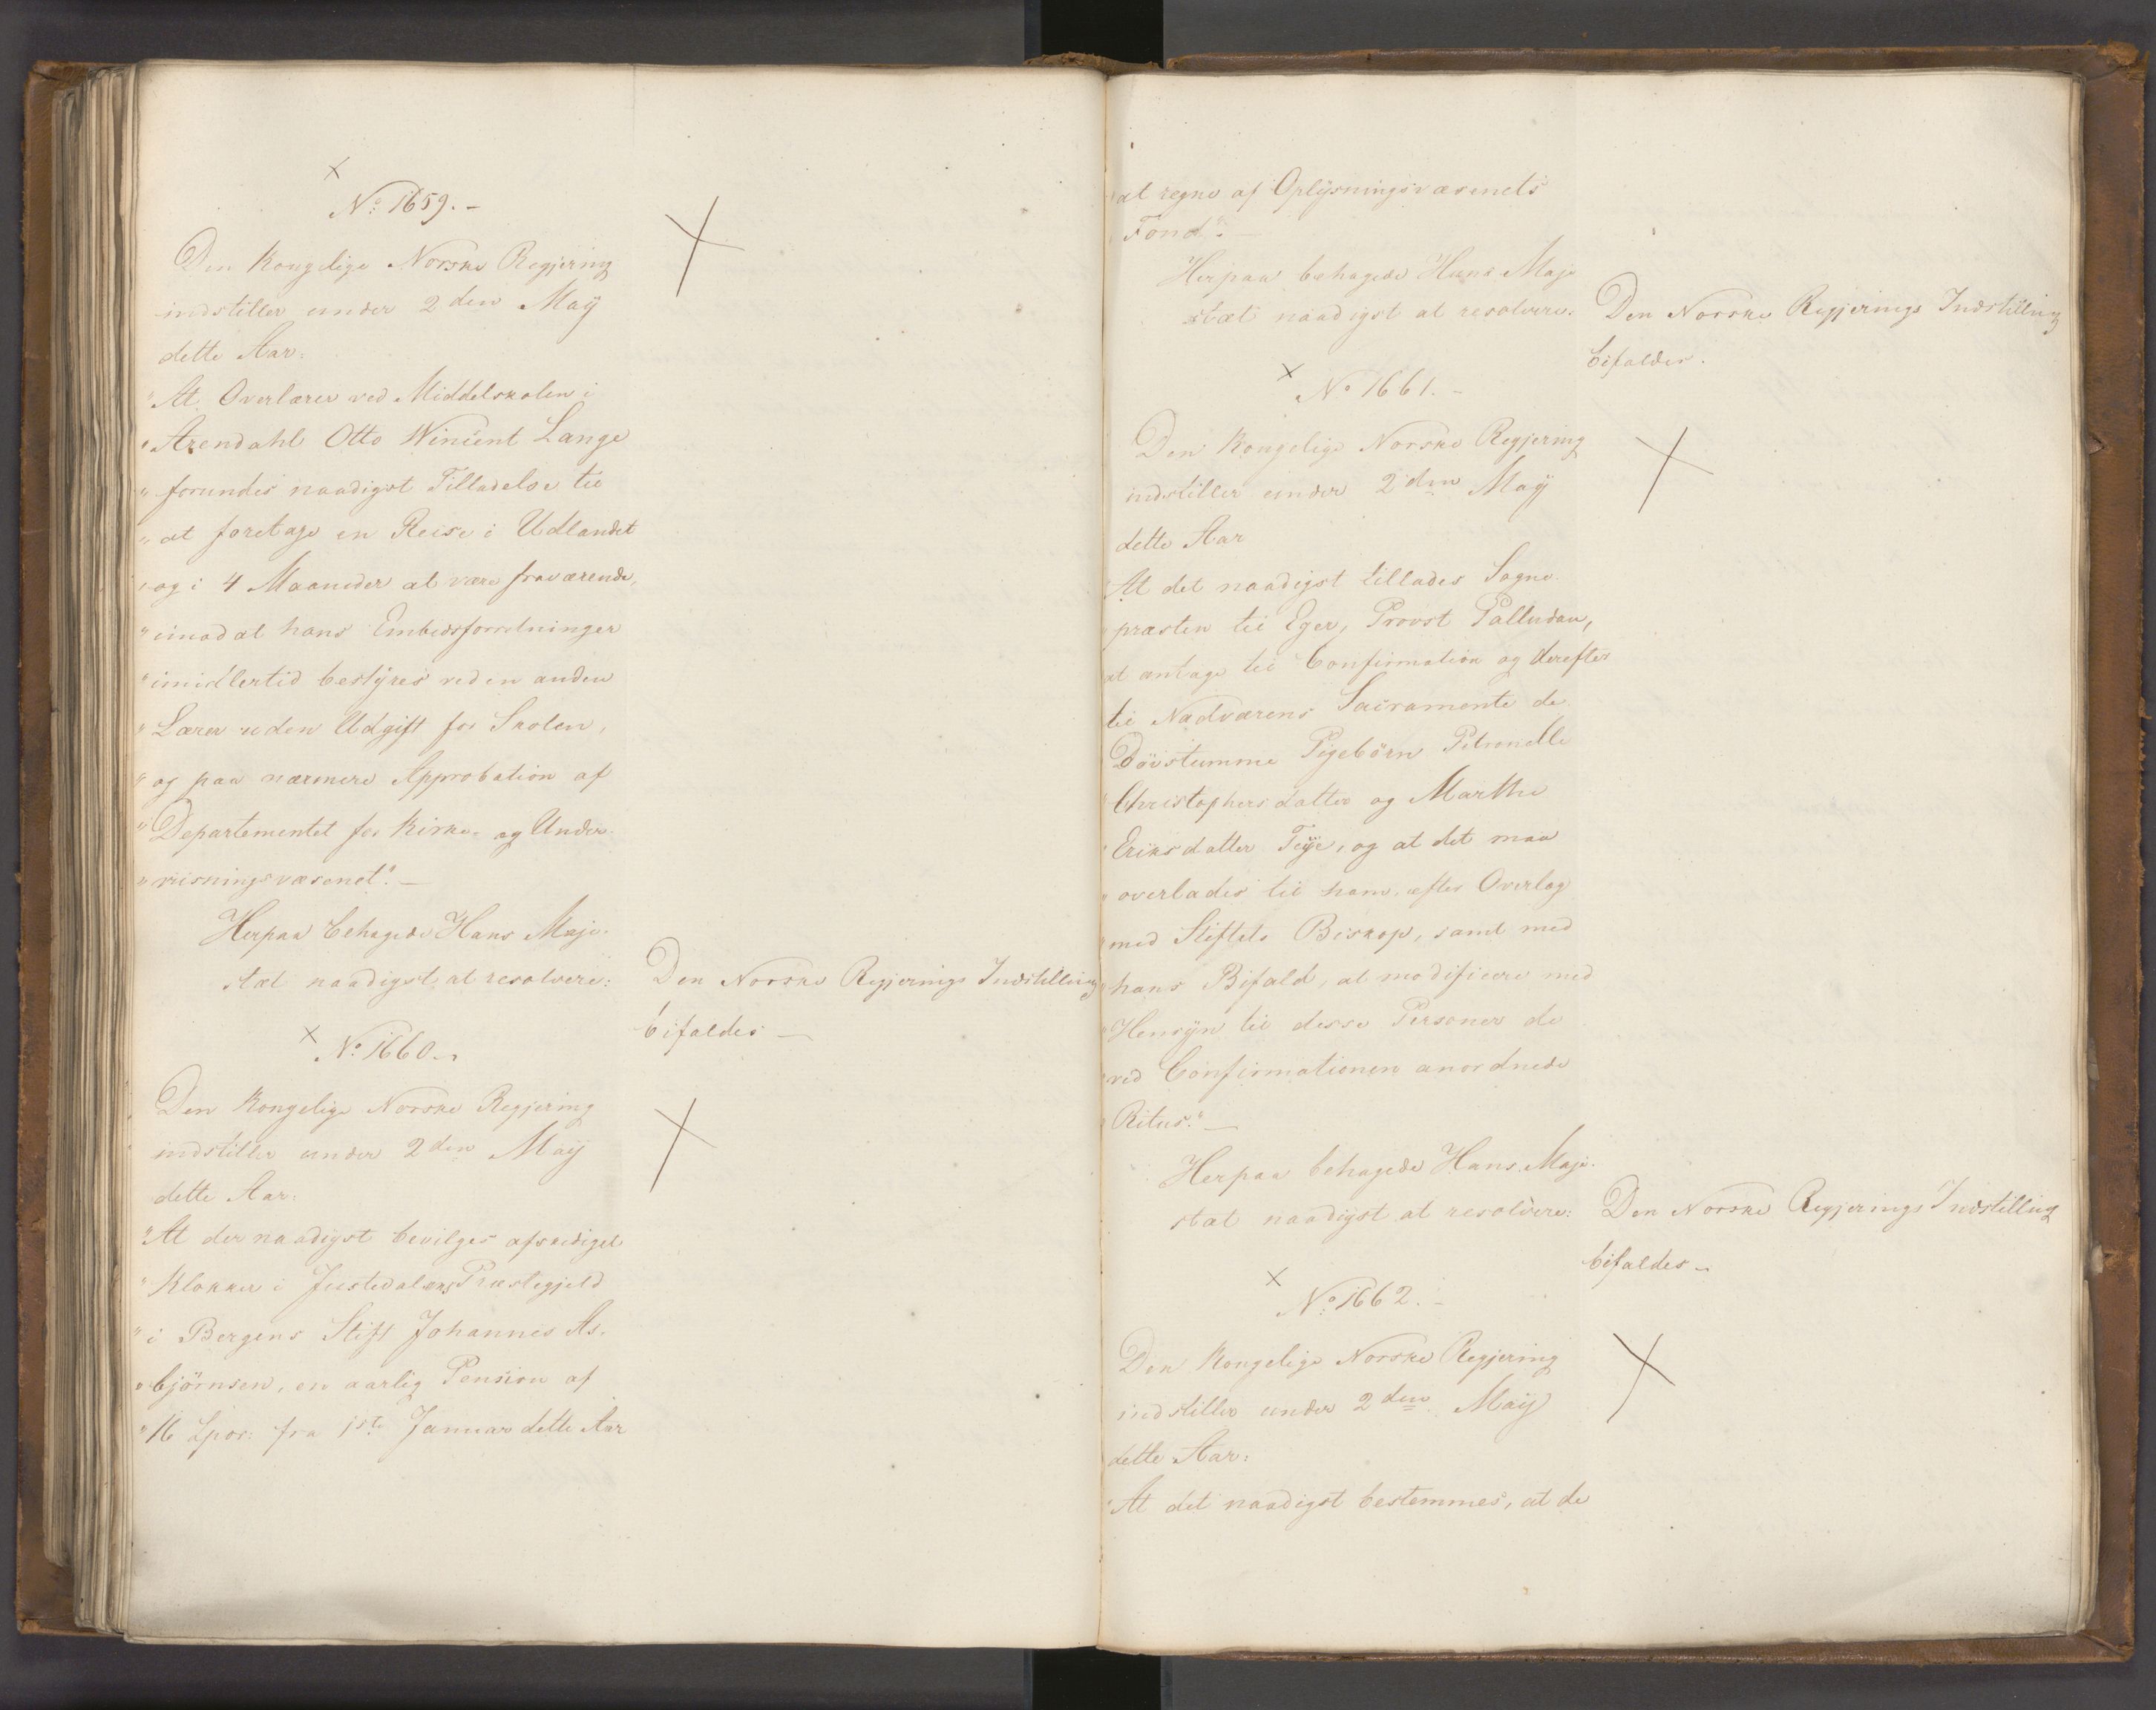 No: 1659.-
Den Kongelige Norske Regjering
indstiller under 2den Maÿ
dette Aar:
"At Overlærer ved Middelskolen i
"Arendahl Otto Wincent Lange
"forundes naadigst Tilladelse til
"at foretage en Reise i Udlandet
"og i 4 Maaneder at være fraværende,
"imod at hans Embedsforretninger
"imidlertid bestÿres ved en anden
"Lærer uden Udgift for Skolen,
"og paa nærmere Approbation af
"Departementet for Kirke- og Under-
"viisningsvæsenet". —
Herpaa behagede Hans Maje-
stæt naadigst at resolvere:
Den Norske Regjerings Indstilling
bifaldes —
No: 1660.-
Den Kongelige Norske Regjering
indstiller under 2den Maÿ
dette Aar:
"At der naadigst bevilges afskediget
"Klokker i Justedalens Præstegjeld
"i Bergens Stift Johannes As-
"björnsen, en aarlig Pension af
"16 Spds: fra 1ste Januar dette Aar
"at regne af Oplÿsningsvæsenets
"Fond". —
Herpaa behagede Hans Maje
stæt naadigst at resolvere:
Den Norske Regjerings Indstilling
bifaldes.
No 1661.-
Den Kongelige Norske Regjering
indstiller under 2den Maÿ
dette Aar
"At det naadigst tillades Sogne-
"præsten til Eger, Provst Palludan,
"at antage til Confirmation og derefter
til Nadværens Sacramente de
"Dövstumme Pigebörn Petronelle
"Christophersdatter og Marthe
"Eriksdatter Teÿe, og at det maa
"overlades til ham, efter Overlæg
"med Stiftets Biskop, samt med
"hans Bifald, at modificere med
"Hensÿn til disse Personer de
"ved Confirmationen anordnede
"Ritus". —
Herpaa behagede Hans Maje-
stæt naadigst at resolvere:
Den Norske Regjerings Indstilling
bifaldes -
No: 1662.-
Den Kongelige Norske Regjering
indstiller under 2den Maÿ
dette Aar:
"At det naadigst bestemmes, at de